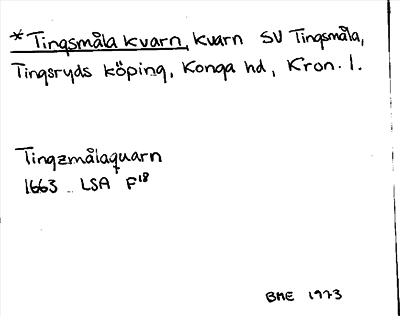 * Tingsmåla kvarn, kvarn SV Tingsmåla,
Tingsryds köping, Konga hd, Kron. l.
Tingzmålaquarn
1663 LSA F18
BME 1973